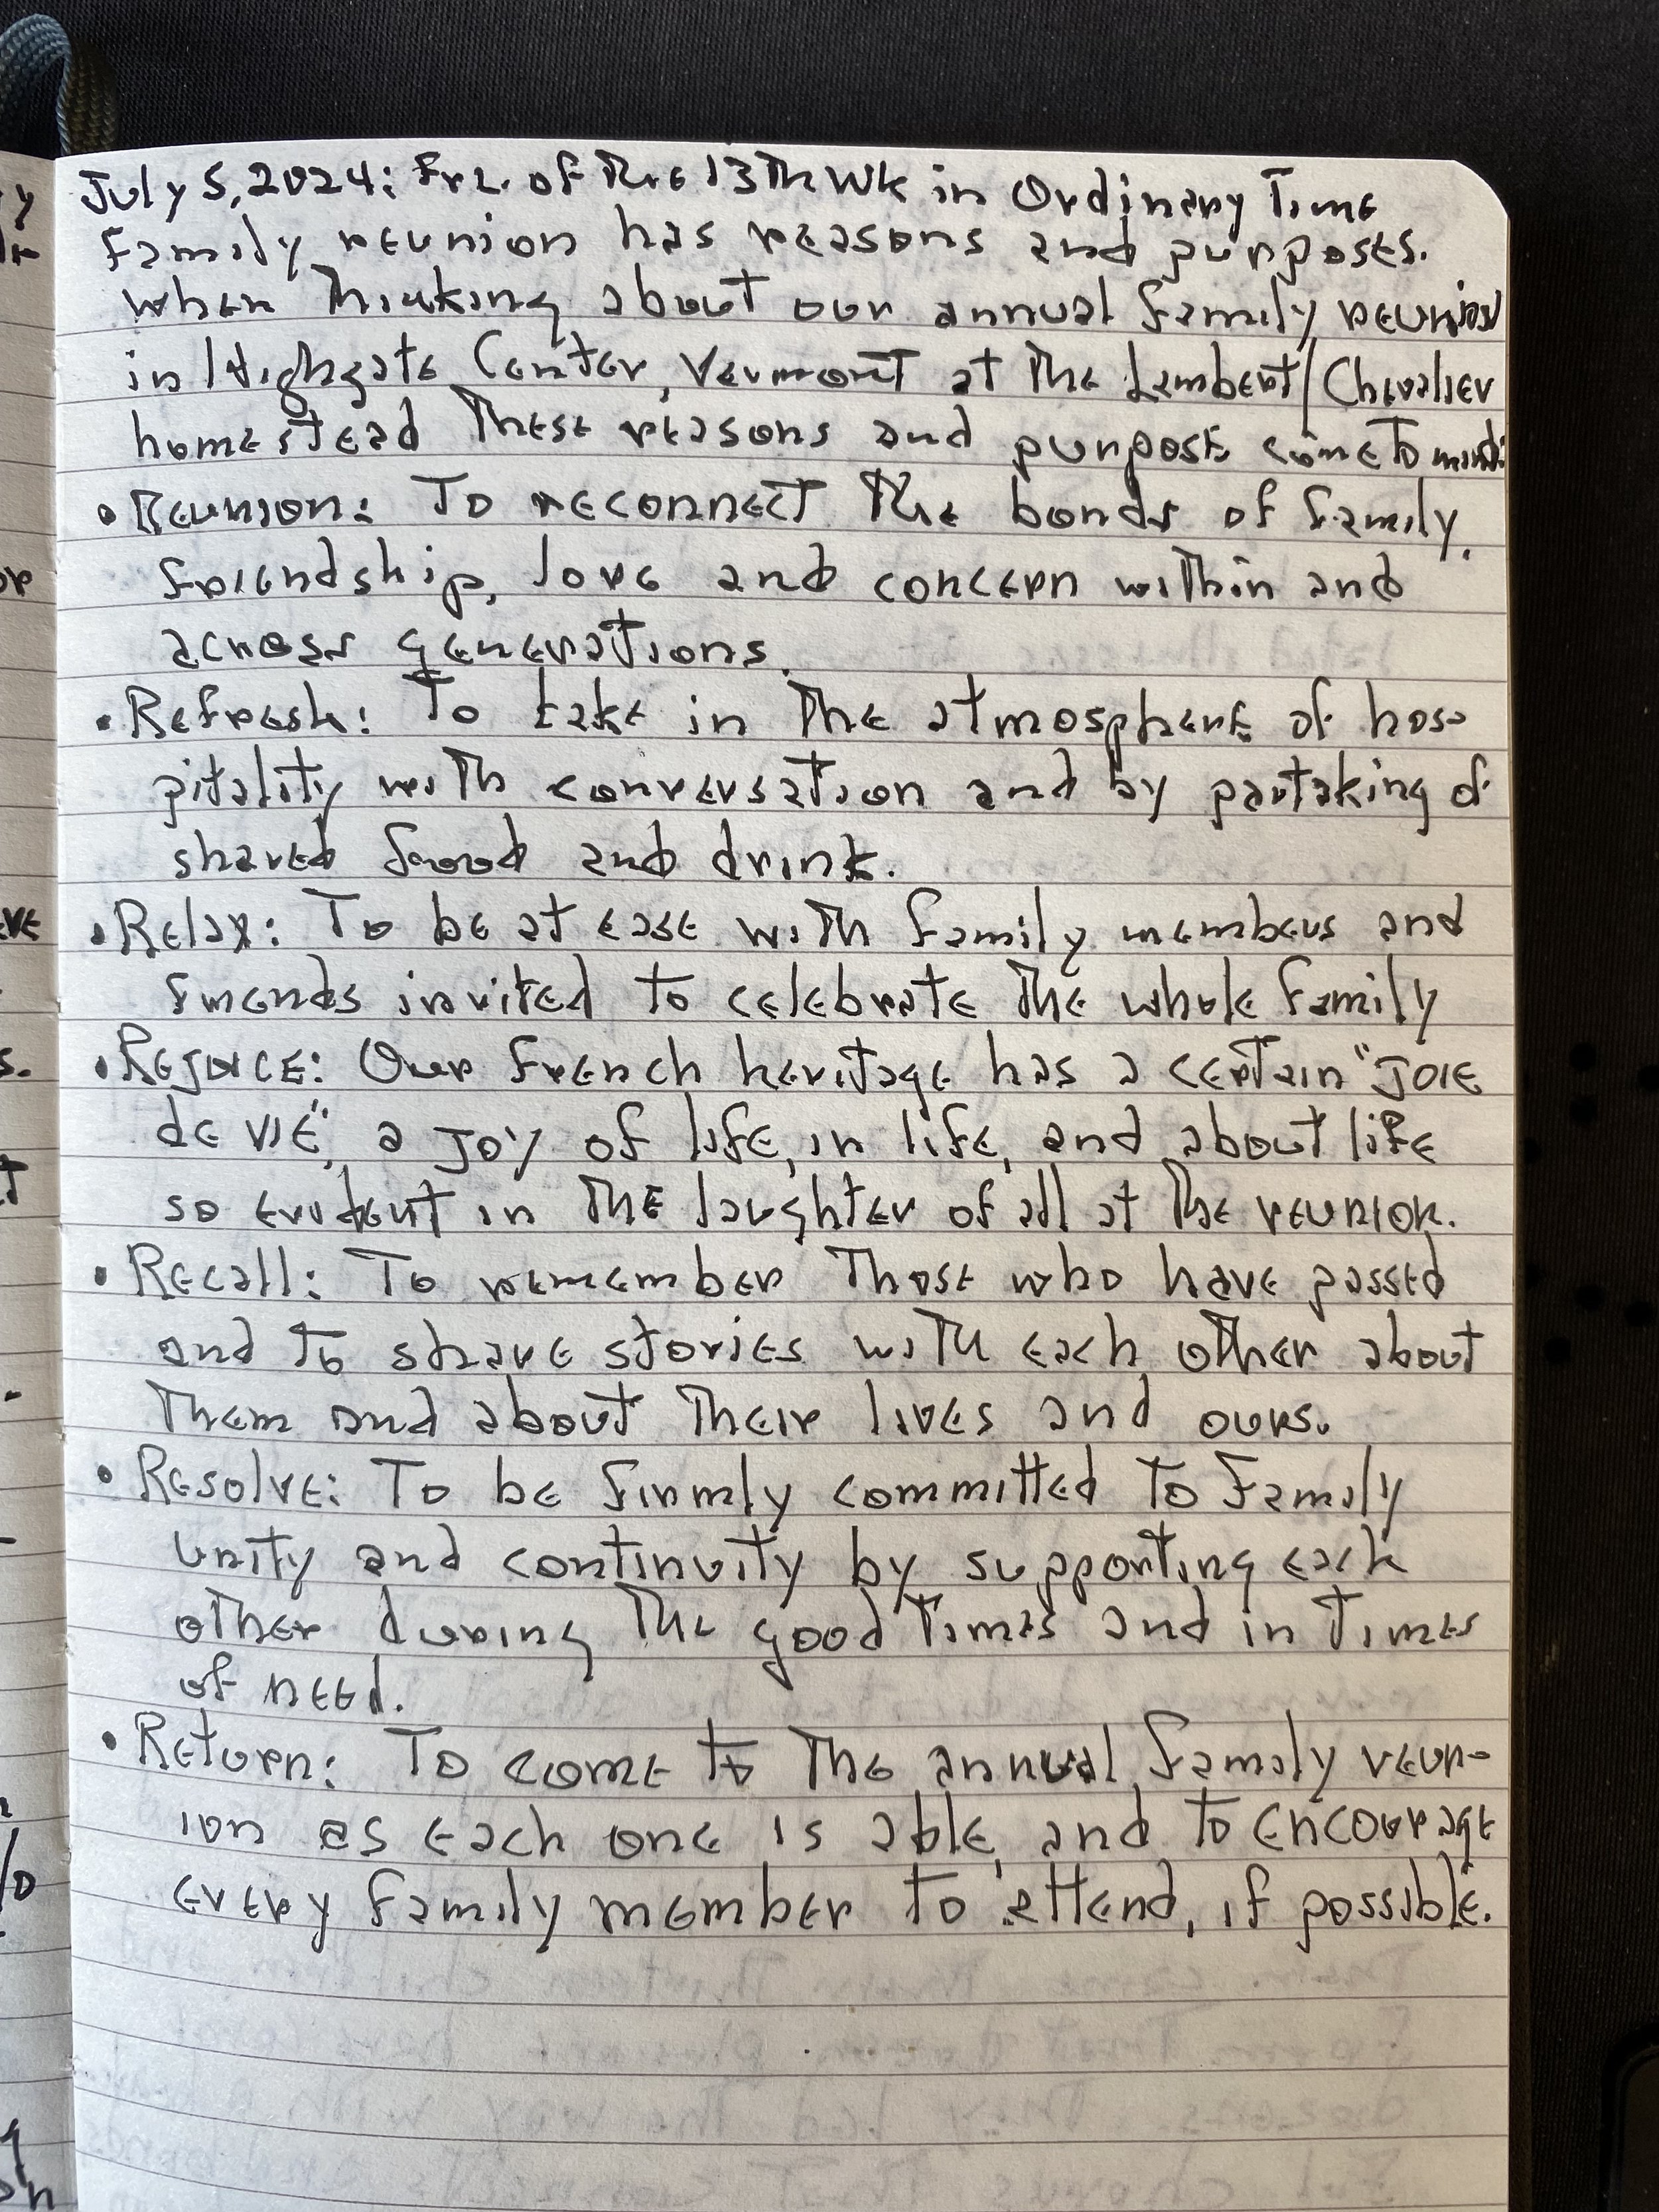 July 5, 2024: Fri. of the 13th Wk in Ordinary Time
Family reunion has reasons and purposes.
When thinking about our annual family reunion
in Highgate Center, Vermont at the Lambert/Chevalier
homestead these reasons and purposes come to mind:
• Reunion: To reconnect the bonds of family,
friendship, love and concern within and
across generations.
• Refresh: To take in the atmosphere of hos-
pitality with conversation and by partaking of
shared food and drink.
• Relax: To be at ease with family members and
friends invited to celebrate the whole family
• Rejoice: Our French heritage has a certain "joie
de vie", a joy of life, in life, and about life
so evident in the laughter of all at the reunion.
• Recall: To remember those who have passed
and to share stories with each other about
them and about their lives and ours.
• Resolve: To be firmly committed to family
unity and continuity by supporting each
other during the good times and in times
of need.
• Return: To come to the annual family reun-
ion as each one is able, and to encourage
every family member to attend, if possible.